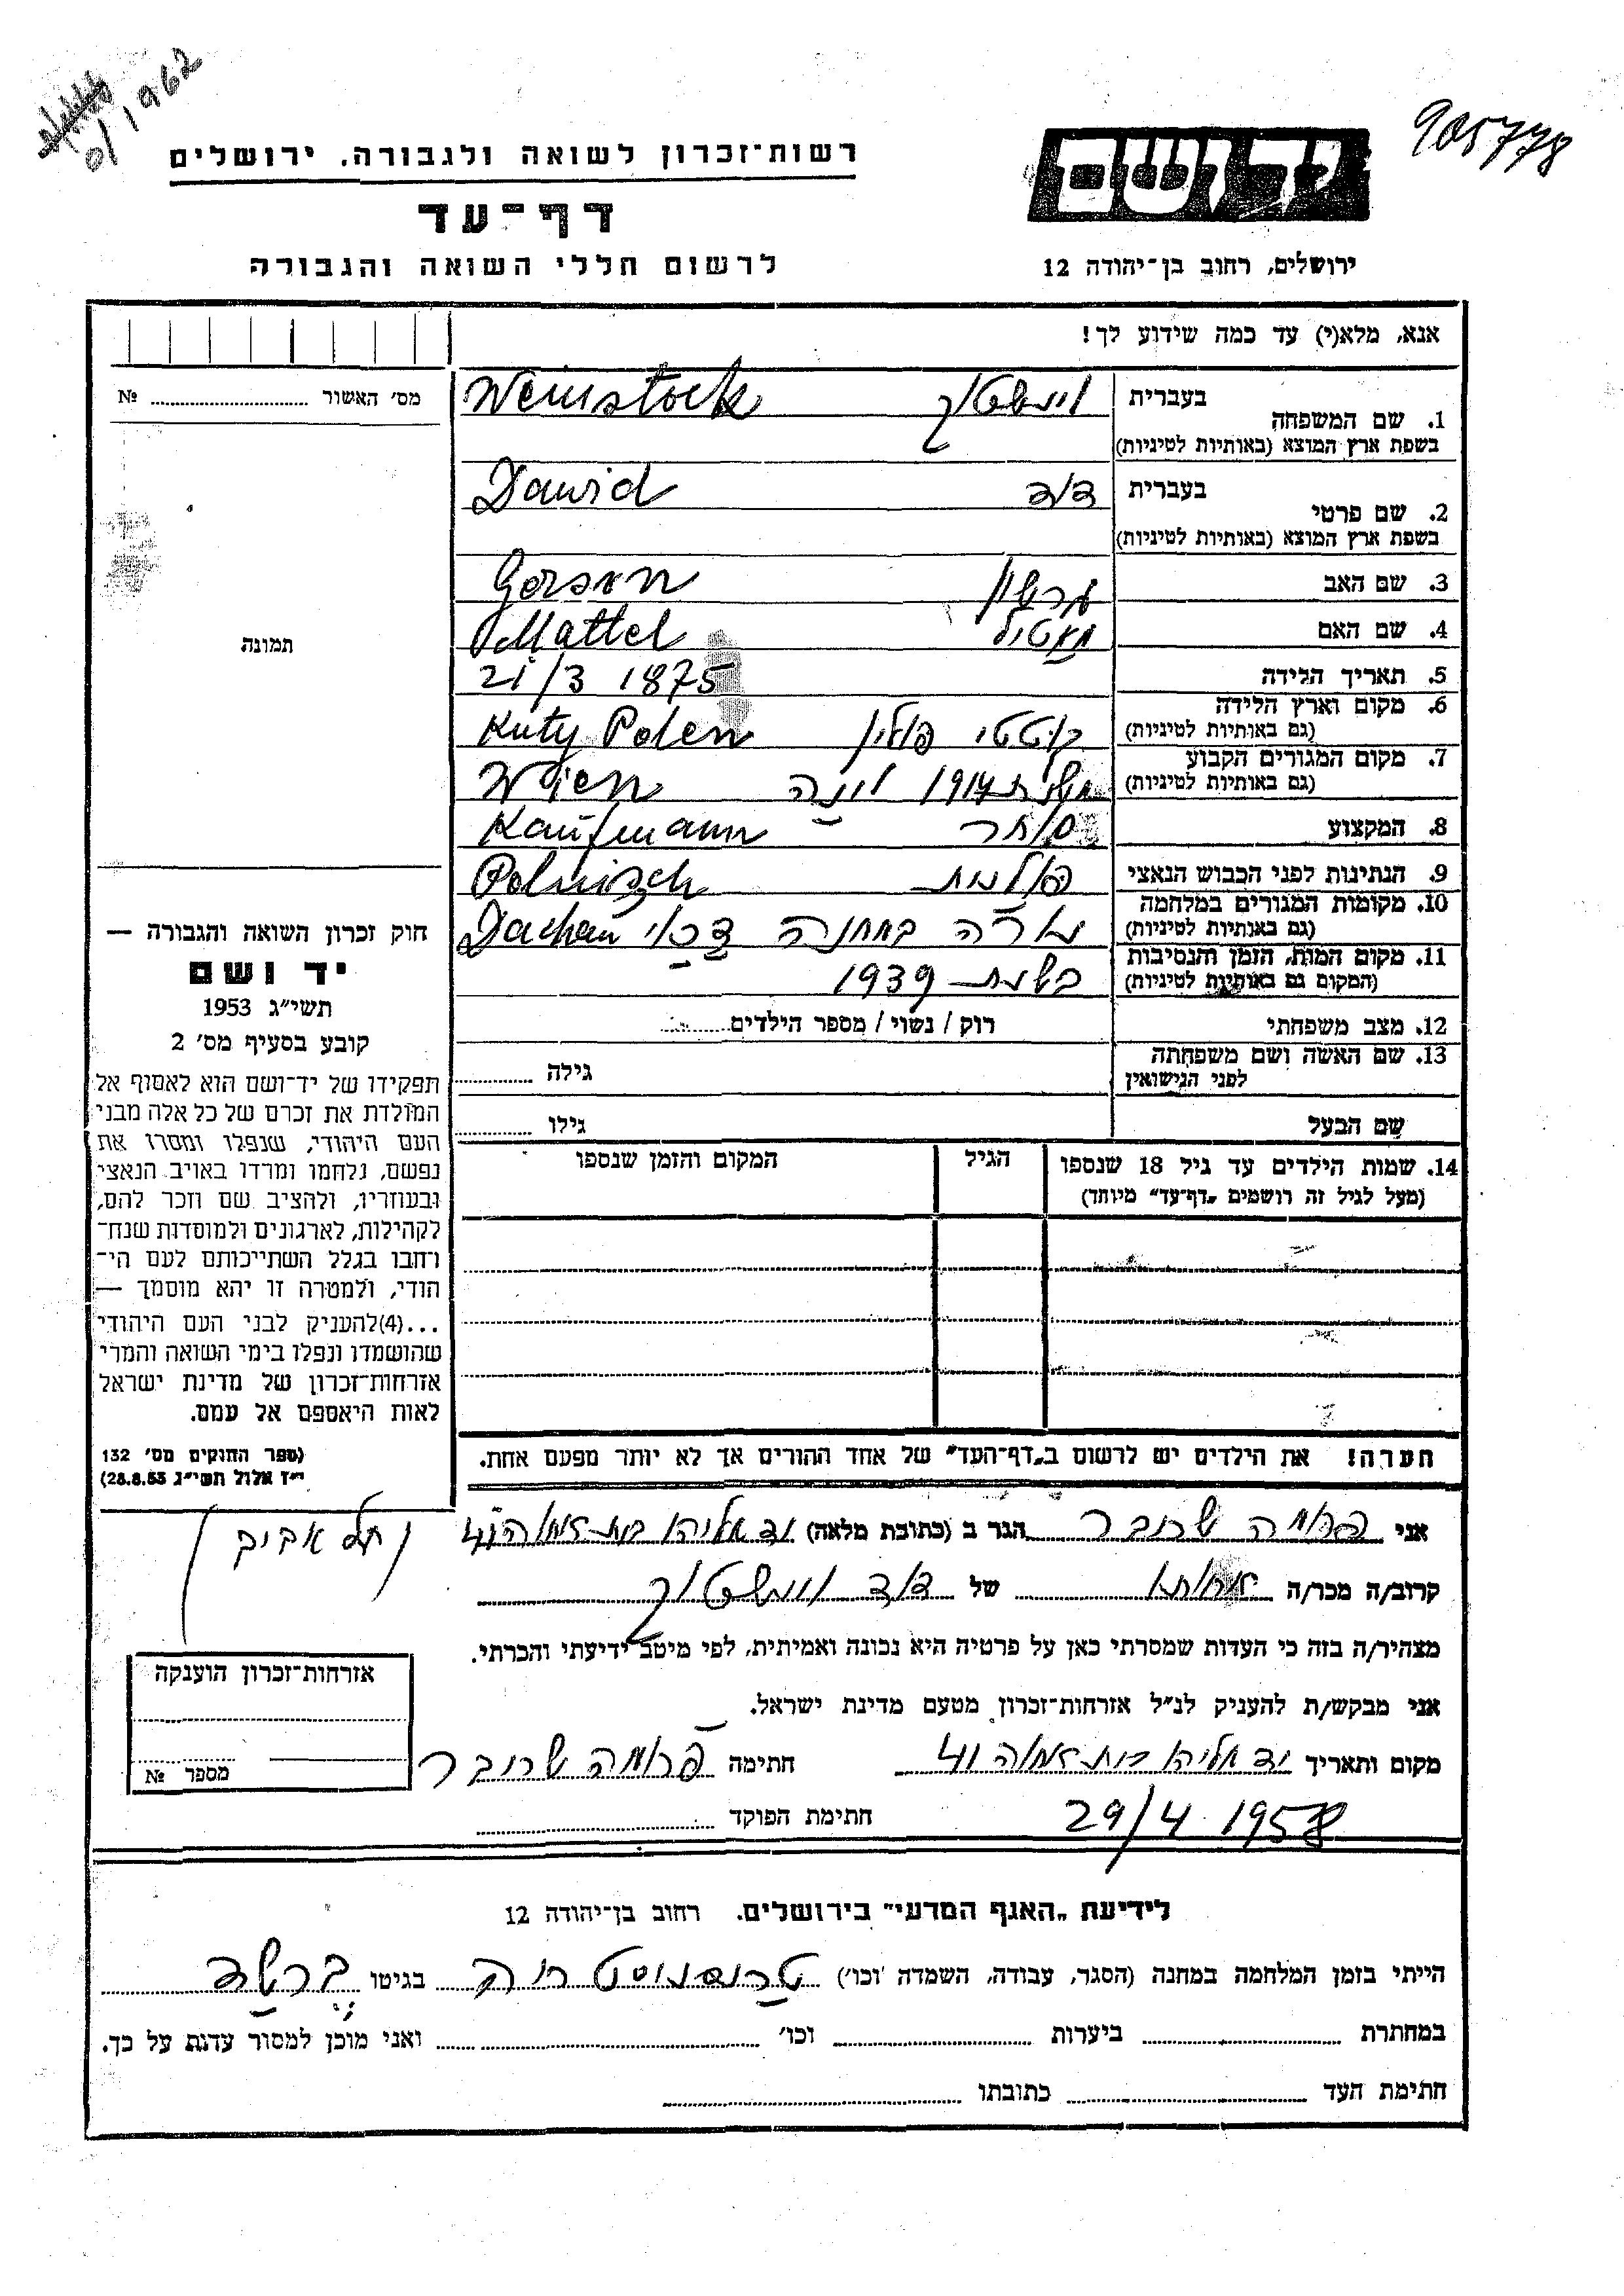 0/1962
905778
יד ושם
רשות־זכרון לשואה ולגבורה. ירושלים
דף־עד
ירושלים, רחוב בן־יהודה 12
לרשום חללי השואה והגבורה
אנא, מלא(י) עד כמה שידוע לך!
מס׳ האשור № 
1. שם המשפחה
בעברית ווינשטוק Weinstock
בשפת ארץ המוצא (באותיות לטיניות)
2. שם פרטי
בעברית דוד Dawid
בשפת ארץ המוצא (באותיות לטיניות)
3. שם האב גרשון Gerson
4. שם האם מאטיל Mattel
5. תאריך הלידה 21/3 1875
6. מקום וארץ הלידה קוטטי פולין Kuty Polen
(גם באותיות לטיניות)
7. מקום המגורים הקבוע משנת 1914 וינה Wien
(גם באותיות לטיניות)
8. המקצוע סוחר Kaufmann
9. הנתינות לפני הכבוש הנאצי פולנית Polnisch
10. מקומות המגורים במלחמה
(גם באותיות לטיניות)
במחנה דכאו Dachau
11. מקום המות, הזמן והנסיבות בשנת 1939
(המקום גם באותיות לטיניות)
12. מצב משפחתי רוק / נשוי / מספר הילדים
13. שם האשה ושם משפחתה
לפני הנישואין גילה
שם הבעל גילו
14. שמות הילדים עד גיל 18 שנספו הגיל המקום והזמן שנספו
(מעל לגיל זה רושמים „דף־עד״ מיוחד)
הערה! את הילדים יש לרשום ב„דף־העד״ של אחד ההורים אך לא יותר מפעם אחת.
תמונה
חוק זכרון השואה והגבורה —
יד ושם
תשי״ג 1953
קובע בסעיף מס׳ 2
תפקידו של יד־ושם הוא לאסוף אל
המולדת את זכרם של כל אלה מבני
העם היהודי, שנפלו ומסרו את
נפשם, נלחמו ומרדו באויב הנאצי
ובעוזריו, ולהציב שם וזכר להם,
לקהילות, לארגונים ולמוסדות שנח־
רחבו בגלל השתייכותם לעם הי־
הודי, ולמטרה זו יהא מוסמך —
...(4)להעניק לבני העם היהודי
שהושמדו ונפלו בימי השואה והמרי
אזרחות־זכרון של מדינת ישראל
לאות היאספם אל עמם.
(ספר החוקים מס׳ 132
י״ז אלול תשי״ג 28.8.53)
אני פרומה שרובר הגר ב (כתובת מלאה) יד אליהו
תל אביב
קרוב/ה מכר/ה של דוד ווינשטוק
מצהיר/ה בזה כי העדות שמסרתי כאן על פרטיה היא נכונה ואמיתית, לפי מיטב ידיעתי והכרתי.
אני מבקש/ת להעניק לנ״ל אזרחות־זכרון מטעם מדינת ישראל.
מקום ותאריך יד אליהו חתימה פרומה שרובר
29/4 1958
חתימת הפוקד
אזרחות־זכרון הוענקה
מספר №
לידיעת „האגף המדעי״ בירושלים. רחוב בן־יהודה 12
הייתי בזמן המלחמה במחנה (הסגר, עבודה, השמדה וכו׳) טרנסניסטריה בגיטו ברשד
במחתרת ביערות וכו׳ ואני מוכן למסור עדות על כך.
חתימת העד כתובתו